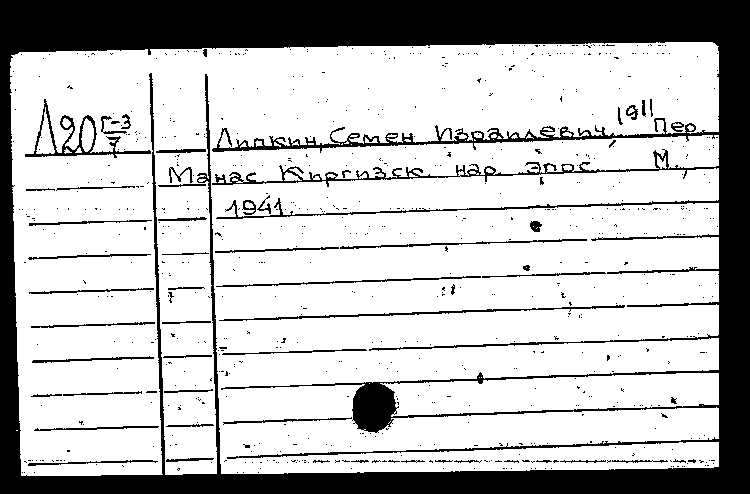 Л20 Г-3/7
Липкин, Семен Израилевич, 1911 Пер.
Манас Киргизск. нар. эпос. М.,
1941.